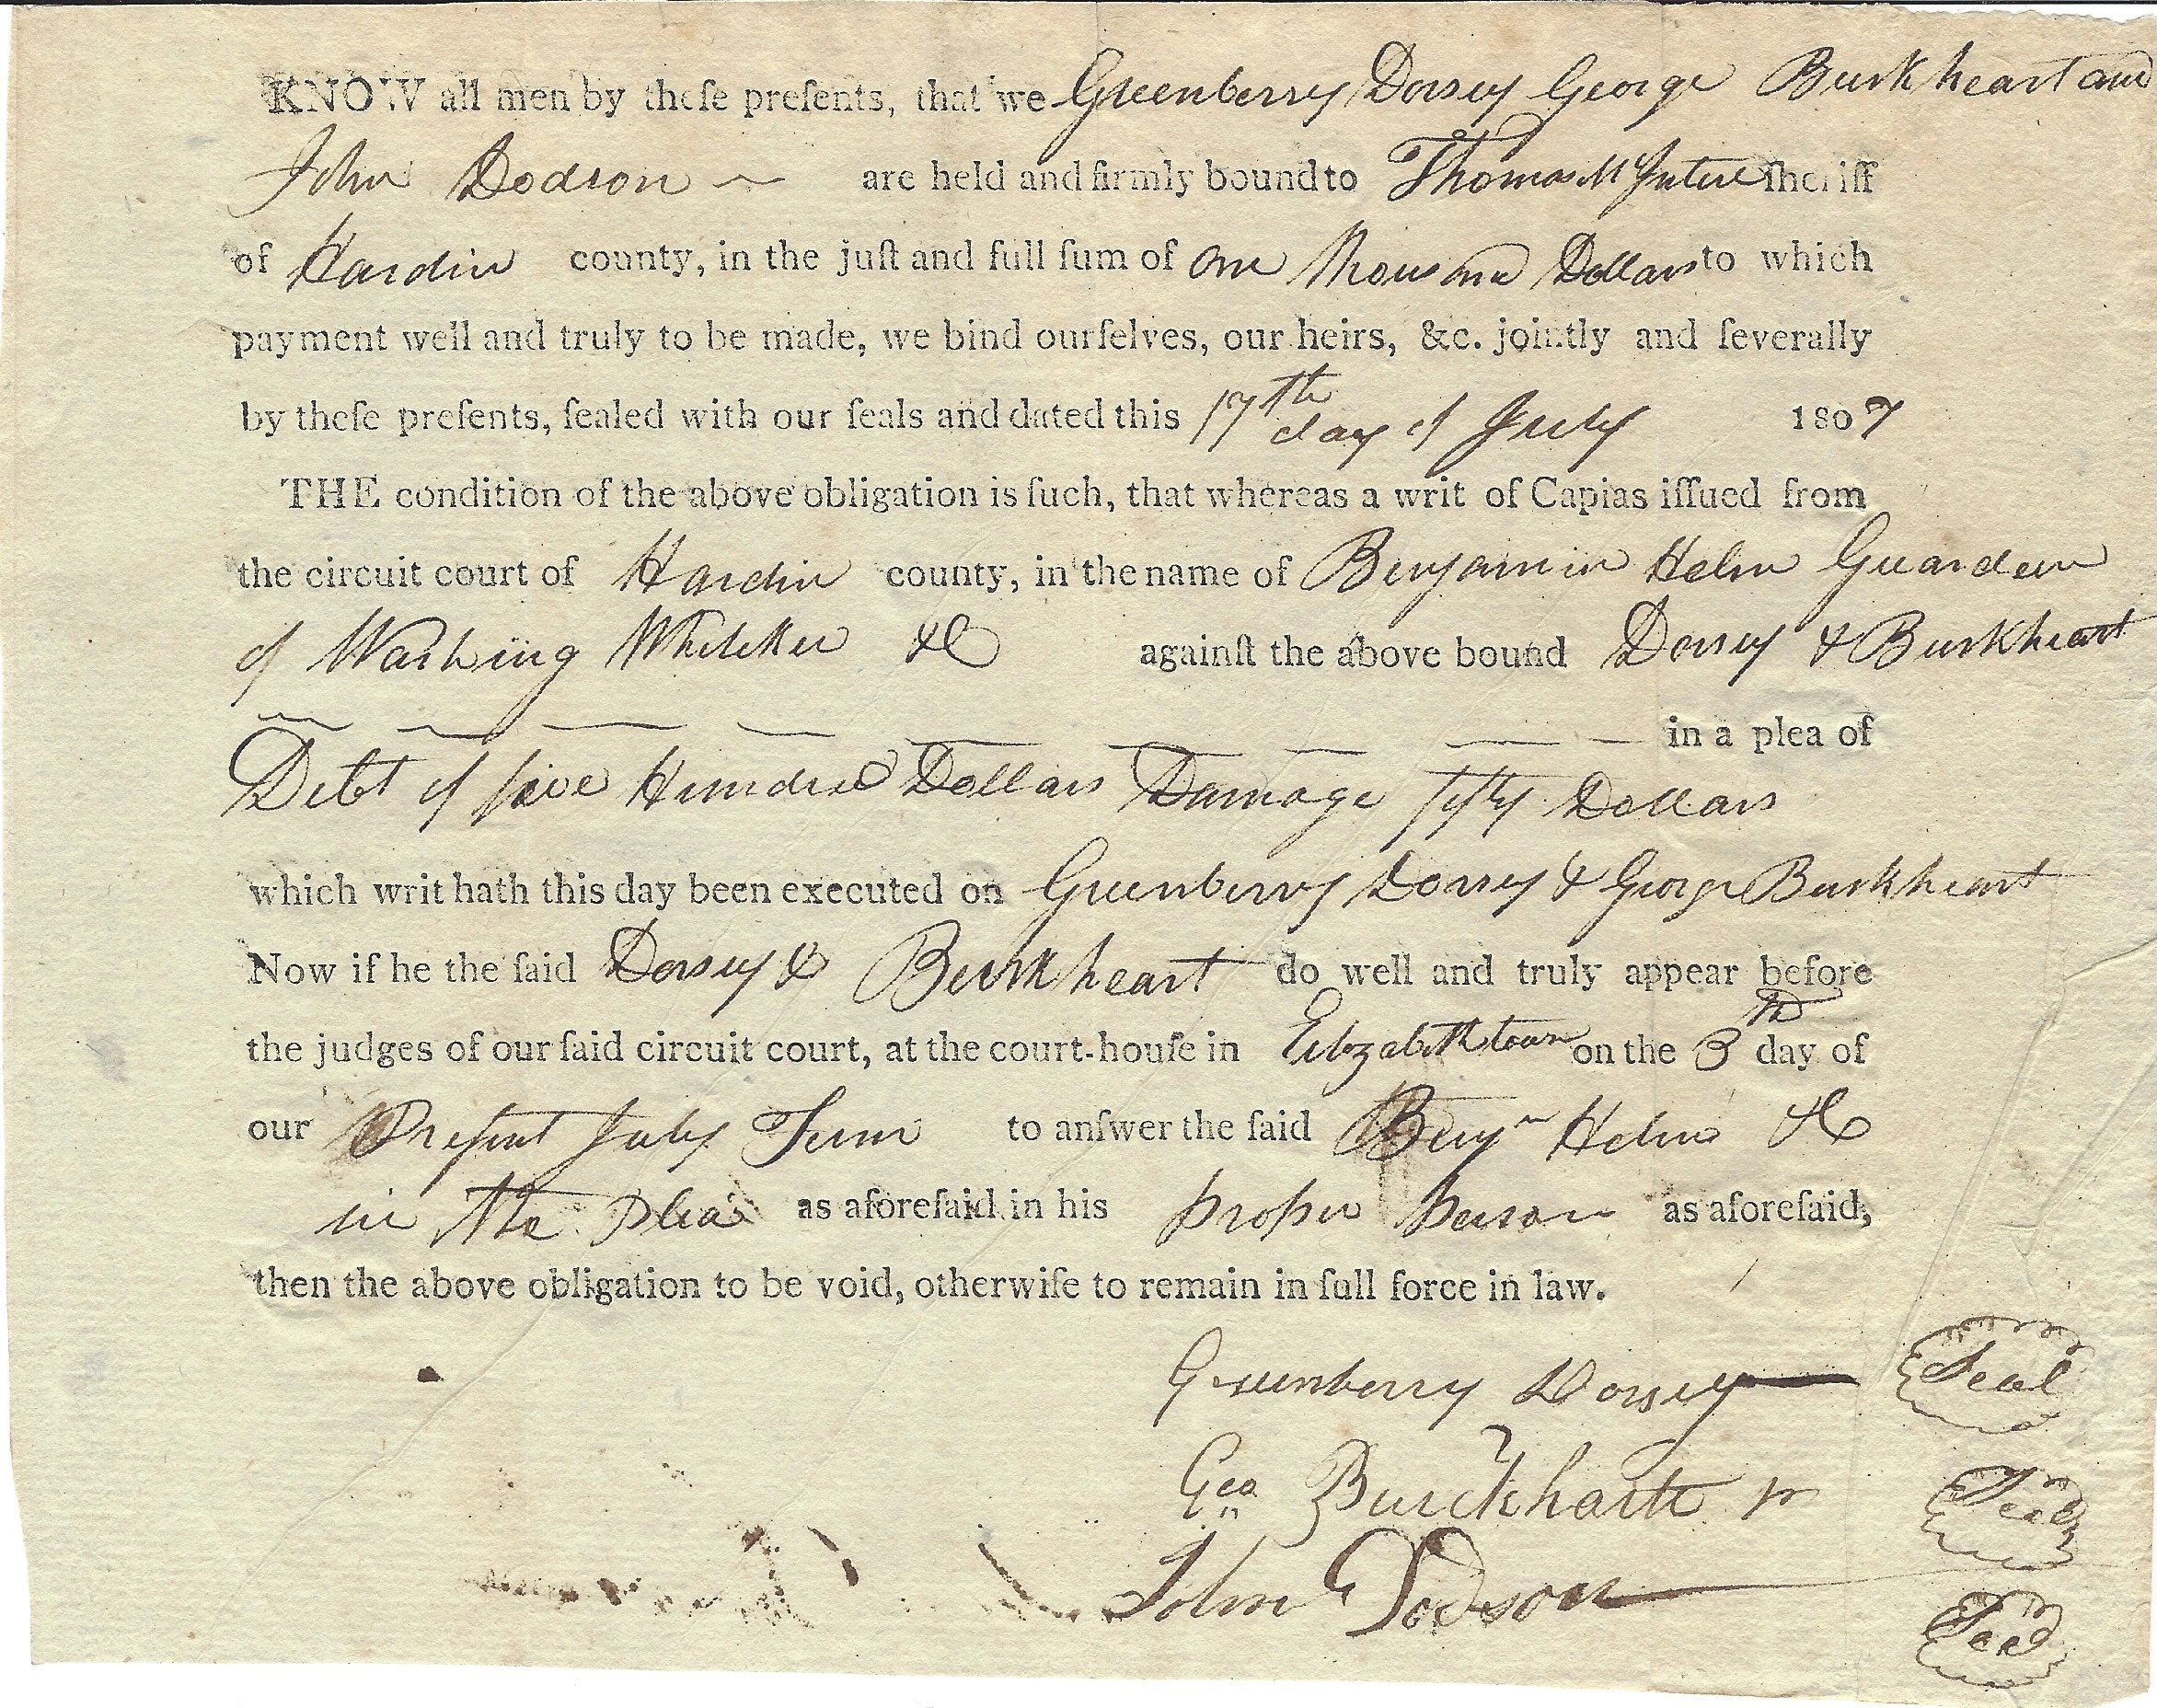 KNOW all men by theſe preſents, that we Greenberry Dorsey George Burkheart and
John Dodson are held and firmly bound to Thomas M Intire ſheriff
of Hardin county, in the juſt and full ſum of One Thousand Dollars to which
payment well and truly to be made, we bind ourſelves, our heirs, &c. jointly and ſeverally
by theſe preſents, ſealed with our ſeals and dated this 17th day of July 1807
THE condition of the above obligation is ſuch, that whereas a writ of Capias iſſued from
the circuit court of Hardin county, in the name of Benjamin Helm Guardein
of Washing Whiteker &C against the above bound Dorsey & Burkheart
in a plea of
Debt of five Hundred Dollars Damage fifty Dollars
which writ hath this day been executed on Greenberry Dorsey & George Burkheart
Now if he the ſaid Dorsey & Burkheart do well and truly appear before
the judges of our ſaid circuit court, at the court-houſe in Elizabethtown on the 3rd day of
our Preſent July Term to anſwer the ſaid Benjn Helm &C
in the plea as aforeſaid in his proper person as aforeſaid,
then the above obligation to be void, otherwiſe to remain in full force in law.
Greenberry Dorsey Seal
Geo Burckhartt Jr Seal
John Dodson Seal